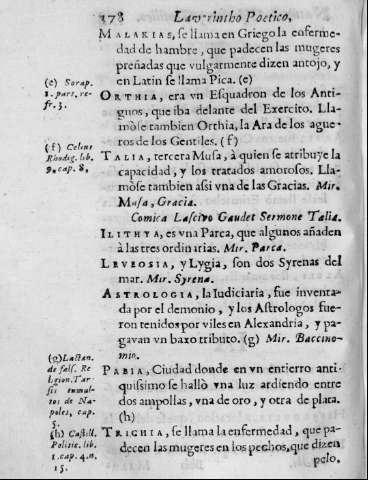 178 Laverintho Poetico,
MALAKIAS, se llama en Griego la enfermedad
dad de hambre, que padecen las mugeres
preñadas que vulgarmente dizen antojo, y
en Latin se llama Pica. (e)
(e) Sorap.
1. part. re-
fr. 3.
ORTHIA, era vn Esquadron de los Anti-
guos, que iba delante del Exercito. Lla-
mòse tambien Orthia, la Ara de los ague-
ros de los Gentiles. (f)
(f) Celius
Rhodig. lib.
9. cap. 8,
TALIA, tercera Musa, à quien se atribuye la
capacidad, y los tratados amorosos. Lla-
mòse tambien assi vna de las Gracias. Mir.
Musa, Gracia.
Comica Lascivo Gaudet Sermone Talia.
ILITHYA, es vna Parca, que algunos añaden
à las tres ordinarias. Mir. Parca.
LEVEOSIA, y Lygia, son dos Syrenas del
mar. Mir. Syrena.
ASTROLOGIA, la Iudiciaria, fue inventa-
da por el demonio, y los Astrologos fue-
ron tenidos por viles en Alexandria, y pa-
gavan vn baxo tributo. (g) Mir. Baccino-
mio.
(g) Lactan.
de fals. Re
ligion. Tar
sis tumul-
tos de Na-
poles, cap.
5.
PABIA, Ciudad donde en vn entierro anti-
quissimo se hallò vna luz ardiendo entre
dos ampollas, vna de oro, y otra de plata.
(h)
(h) Castill.
Politic. lib.
1. cap. 4. n.
15.
TRICHIA, se llama la enfermedad, que pa-
decen las mugeres en los pechos, que dizen
pelo.